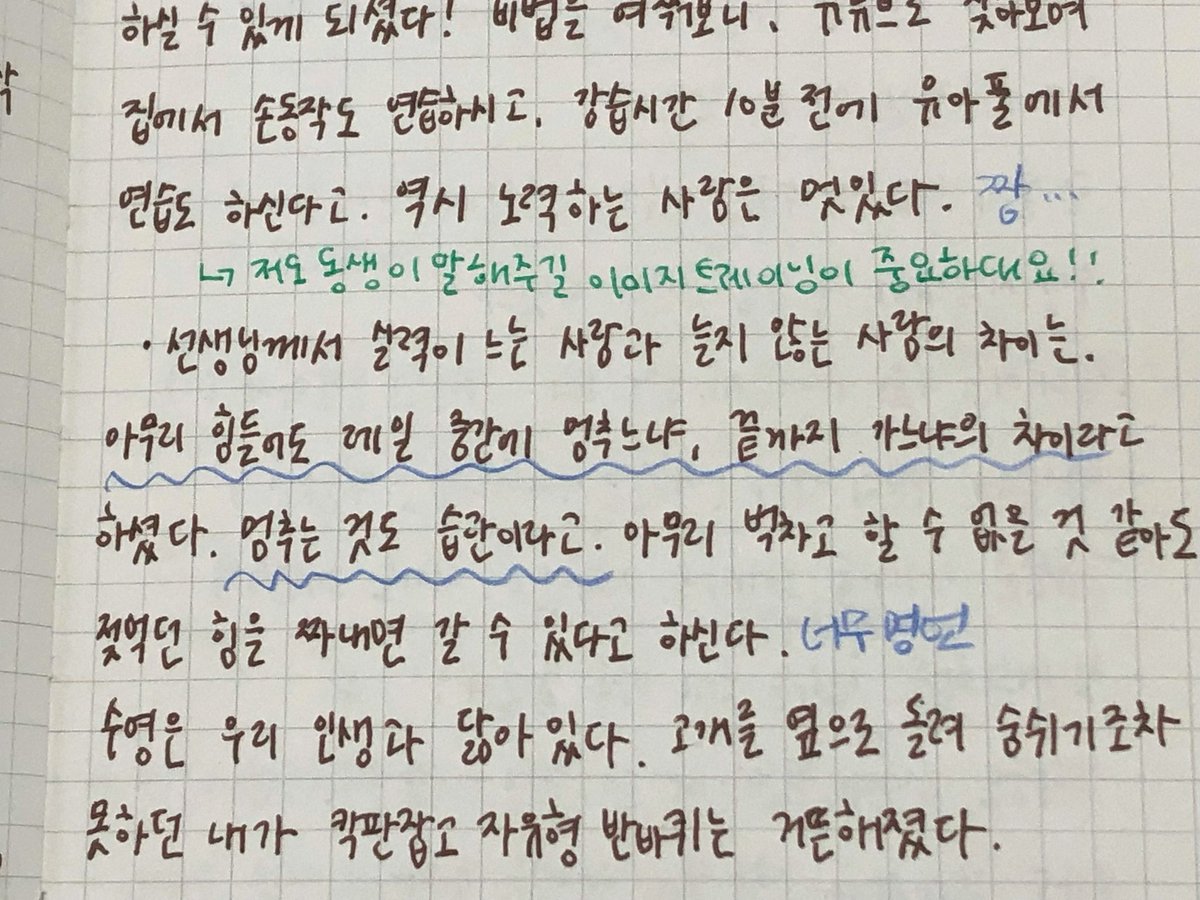 하실 수 있게 되셨다! 비법을 여쭤보니, 유튜브로 찾아보며
집에서 손동작도 연습하시고, 강습시간 10분 전에 유아풀에서
연습도 하신다고. 역시 노력하는 사람은 멋있다. 짱...
↳ 저도 동생이 말해주길 이미지 트레이닝이 중요하대요!!
· 선생님께서 실력이 느는 사람과 늘지 않는 사람의 차이는.
아무리 힘들어도 레일 중간에 멈추느냐, 끝까지 가느냐의 차이라고
하셨다. 멈추는 것도 습관이라고. 아무리 벅차고 할 수 없을 것 같아도
젖먹던 힘을 짜내면 갈 수 있다고 하신다. 너무 명언
수영은 우리 인생과 닮아 있다. 고개를 옆으로 돌려 숨쉬기조차
못하던 내가 킥판잡고 자유형 반바퀴는 거뜬해졌다.